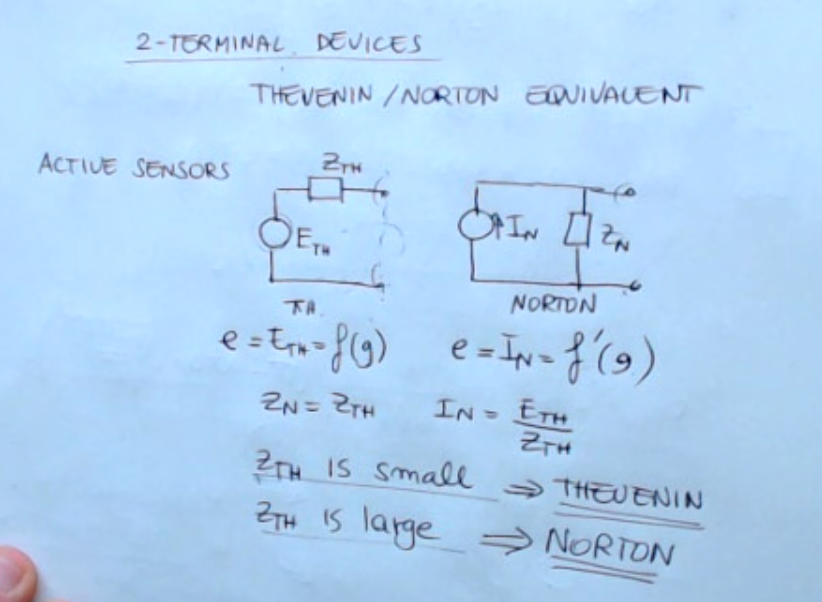 2-TERMINAL DEVICES
THEVENIN / NORTON EQUIVALENT
ACTIVE SENSORS
Z_TH
E_TH
I_N
Z_N
TH.
NORTON
e = E_TH = f(g)
e = I_N = f'(g)
Z_N = Z_TH
I_N = E_TH / Z_TH
Z_TH IS small ⇒ THEVENIN
Z_TH IS large ⇒ NORTON